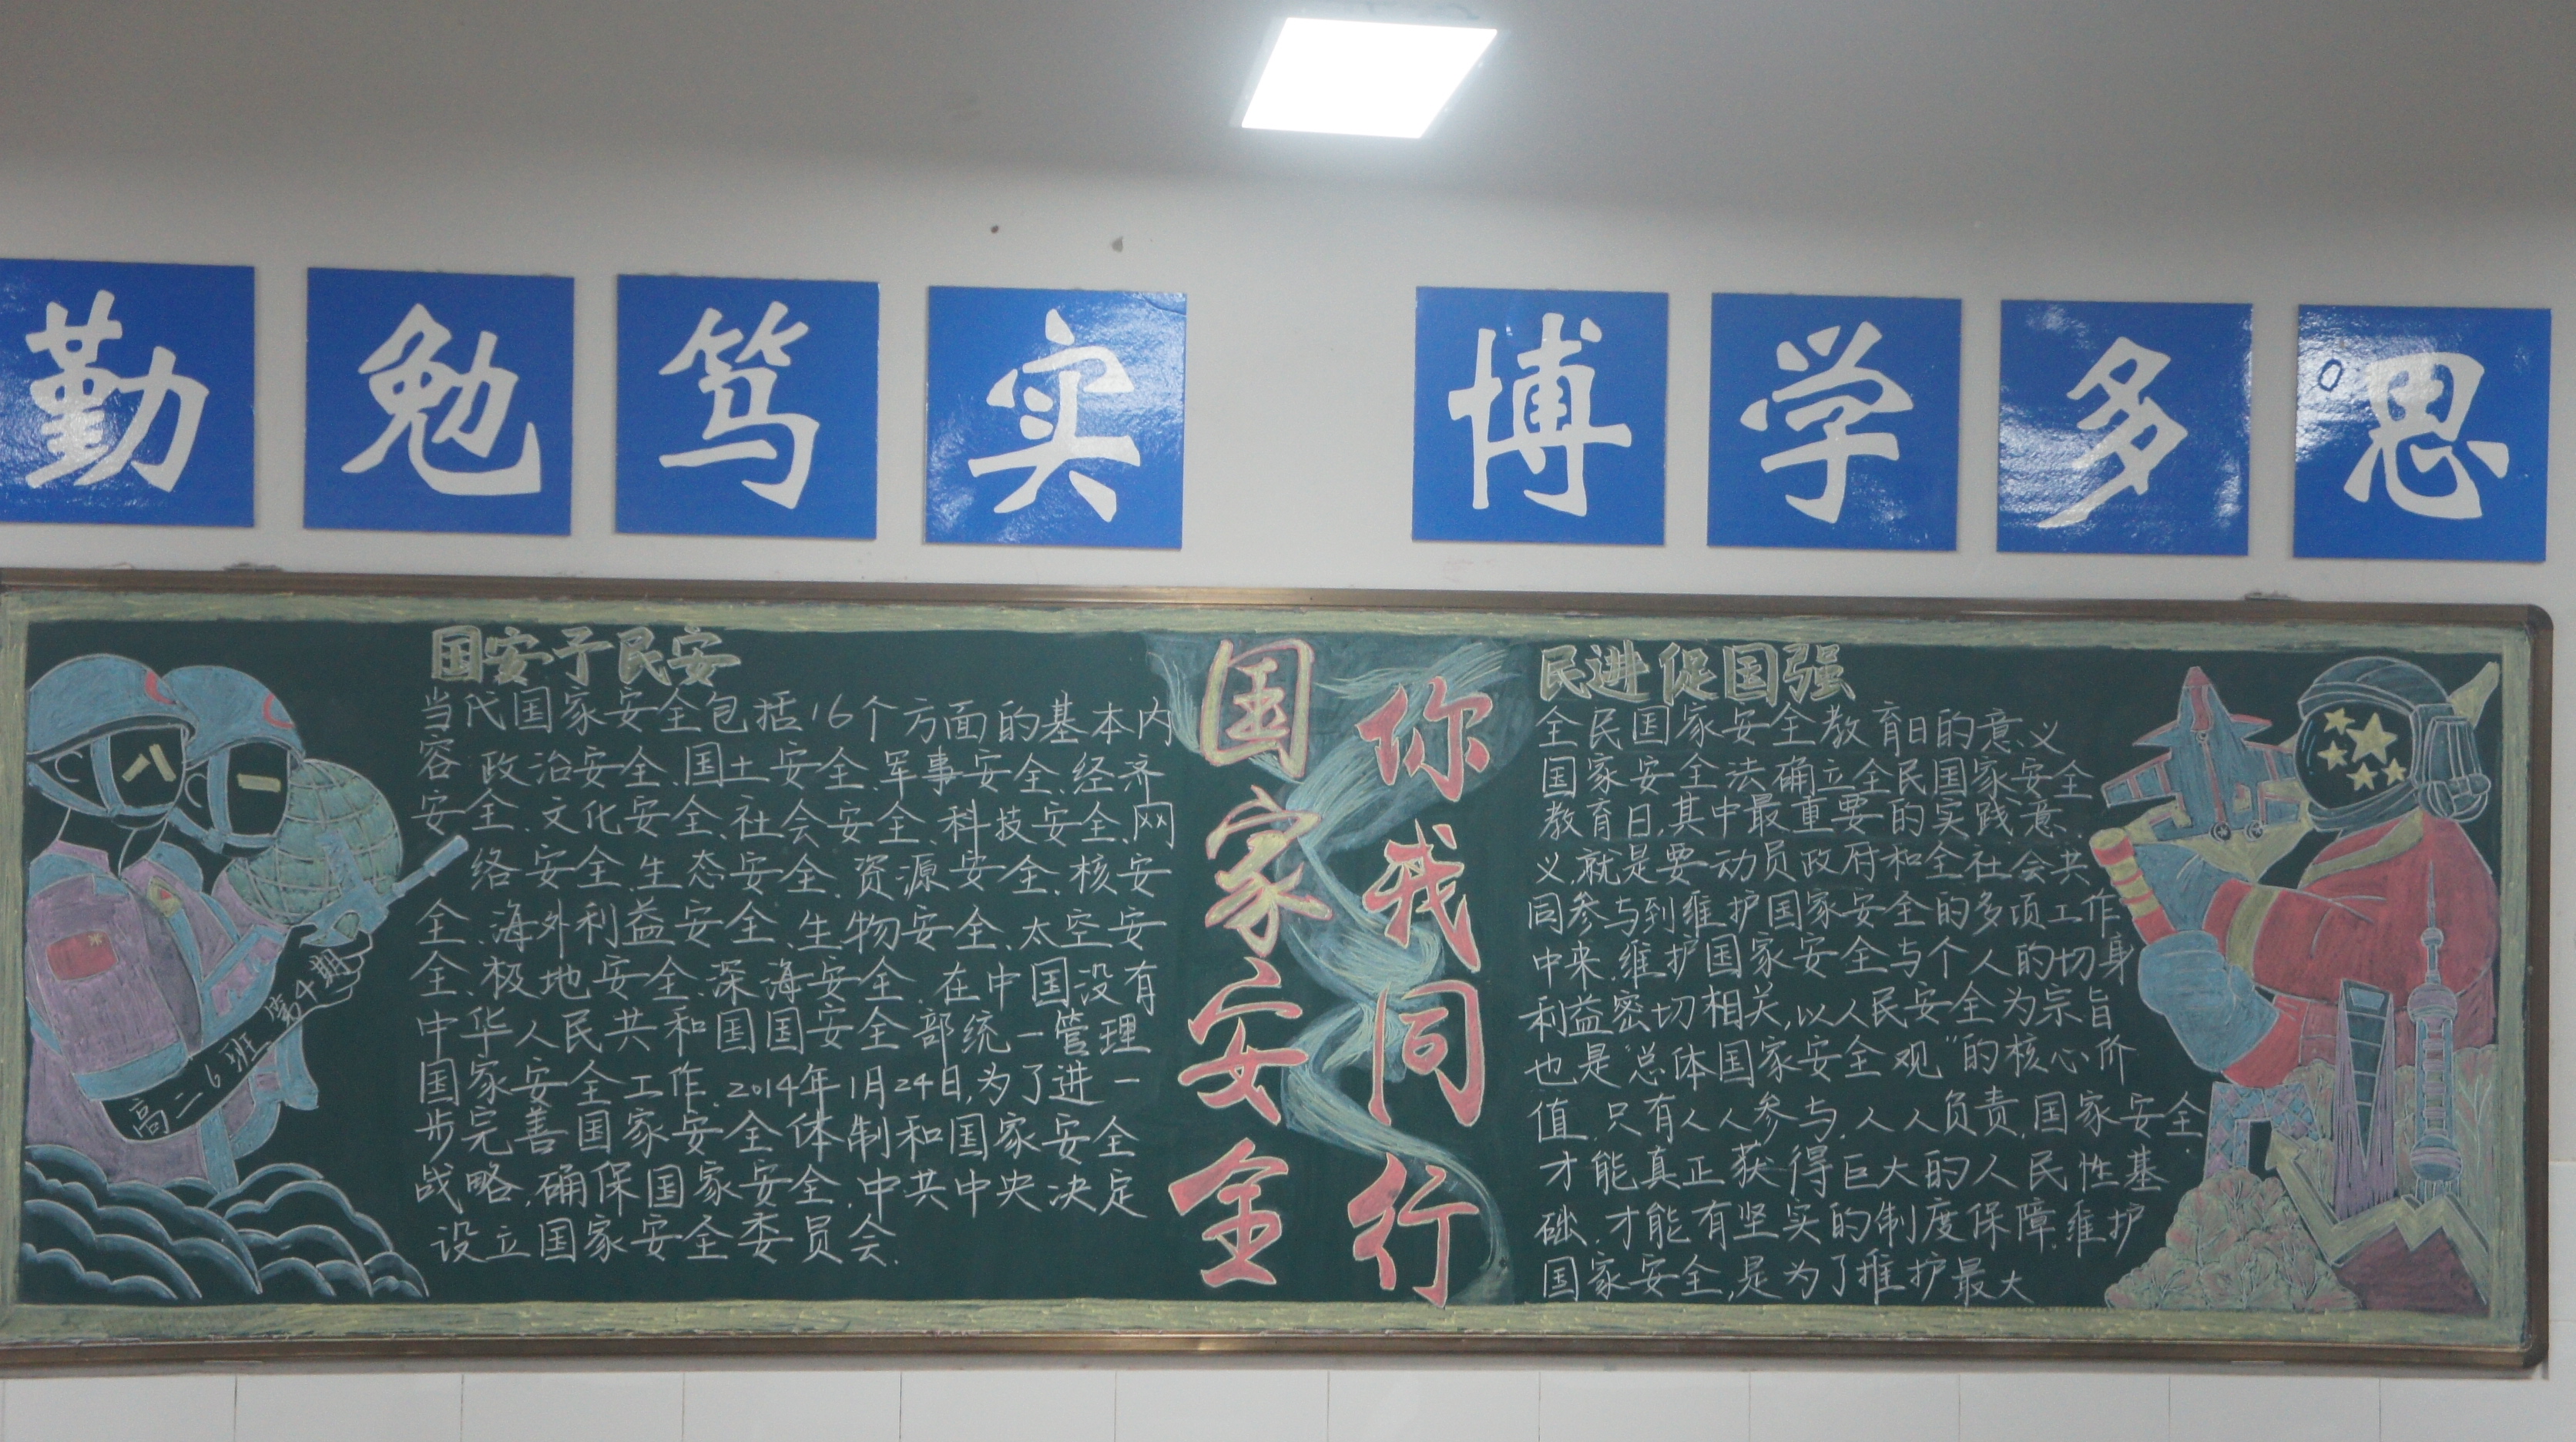 勤勉笃实 博学多思
国安予民安
当代国家安全包括16个方面的基本内
容:政治安全、国土安全、军事安全、经济
安全、文化安全、社会安全、科技安全、网
络安全、生态安全、资源安全、核安
全、海外利益安全、生物安全、太空安
全、极地安全、深海安全.在中国没有
中华人民共和国国安全部统一管理
国家安全工作.2014年1月24日,为了进一
步完善国家安全体制和国家安全
战略,确保国家安全,中共中央决定
设立国家安全委员会.
高二6班 第4期
八一
国家安全
你我同行
民进促国强
全民国家安全教育日的意义
国家安全法确立全民国家安全
教育日,其中最重要的实践意
义,就是要动员政府和全社会共
同参与到维护国家安全的多项工作
中来,维护国家安全与个人的切身
利益密切相关,以人民安全为宗旨
也是“总体国家安全观”的核心价
值,只有人人参与,人人负责,国家安全
才能真正获得巨大的人民性基
础,才能有坚实的制度保障.维护
国家安全,是为了维护最大